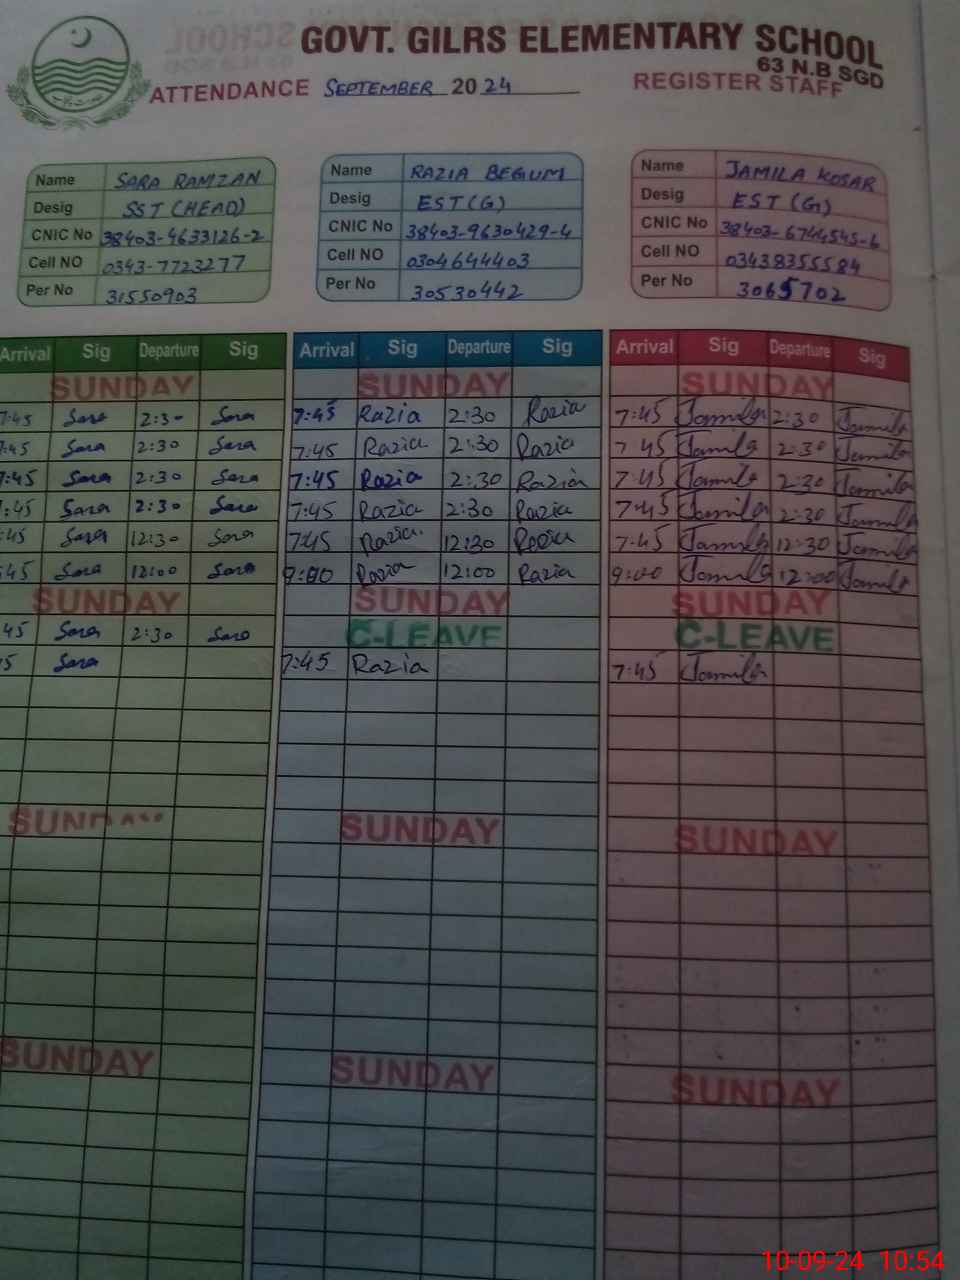 GOVT. GILRS ELEMENTARY SCHOOL
63 N.B SGD
ATTENDANCE SEPTEMBER 2024 REGISTER STAFF
Name SARA RAMZAN Name RAZIA BEGUM Name JAMILA KOSAR
Desig SST (HEAD) Desig EST (G) Desig EST (G)
CNIC No 38403-4633126-2 CNIC No 38403-9630429-4 CNIC No 38403-6744545-6
Cell NO 0343-7723277 Cell NO 0304644403 Cell NO 03438355584
Per No 31550903 Per No 30530442 Per No 3065702
Arrival Sig Departure Sig Arrival Sig Departure Sig Arrival Sig Departure Sig
SUNDAY SUNDAY SUNDAY
7:45 Sara 2:30 Sara 7:45 Razia 2:30 Razia 7:45 Jamila 2:30 Jamila
7:45 Sara 2:30 Sara 7:45 Razia 2:30 Razia 7 45 Jamila 2:30 Jamila
7:45 Sara 2:30 Sara 7:45 Razia 2:30 Razia 7:45 Jamila 2:30 Jamila
:45 Sara 2:30 Sara 7:45 Razia 2:30 Razia 7:45 Jamila 2:30 Jamila
:45 Sara 12:30 Sara 7:45 Razia 12:30 Razia 7:45 Jamila 12:30 Jamila
:45 Sara 12:00 Sara 9:00 Razia 12:00 Razia 9:00 Jamila 12:00 Jamila
SUNDAY SUNDAY SUNDAY
45 Sara 2:30 Sara C-LEAVE C-LEAVE
5 Sara 7:45 Razia 7:45 Jamila
SUNDAY SUNDAY SUNDAY
SUNDAY SUNDAY SUNDAY
10-09-24 10:54